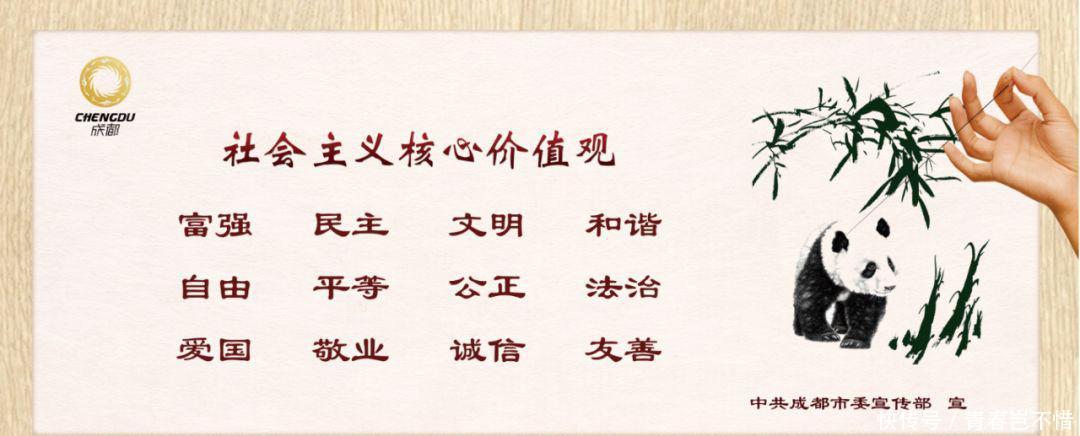 CHENGDU
成都
社会主义核心价值观
富强 民主 文明 和谐
自由 平等 公正 法治
爱国 敬业 诚信 友善
中共成都市委宣传部 宣
快传号 / 青春岂不惜